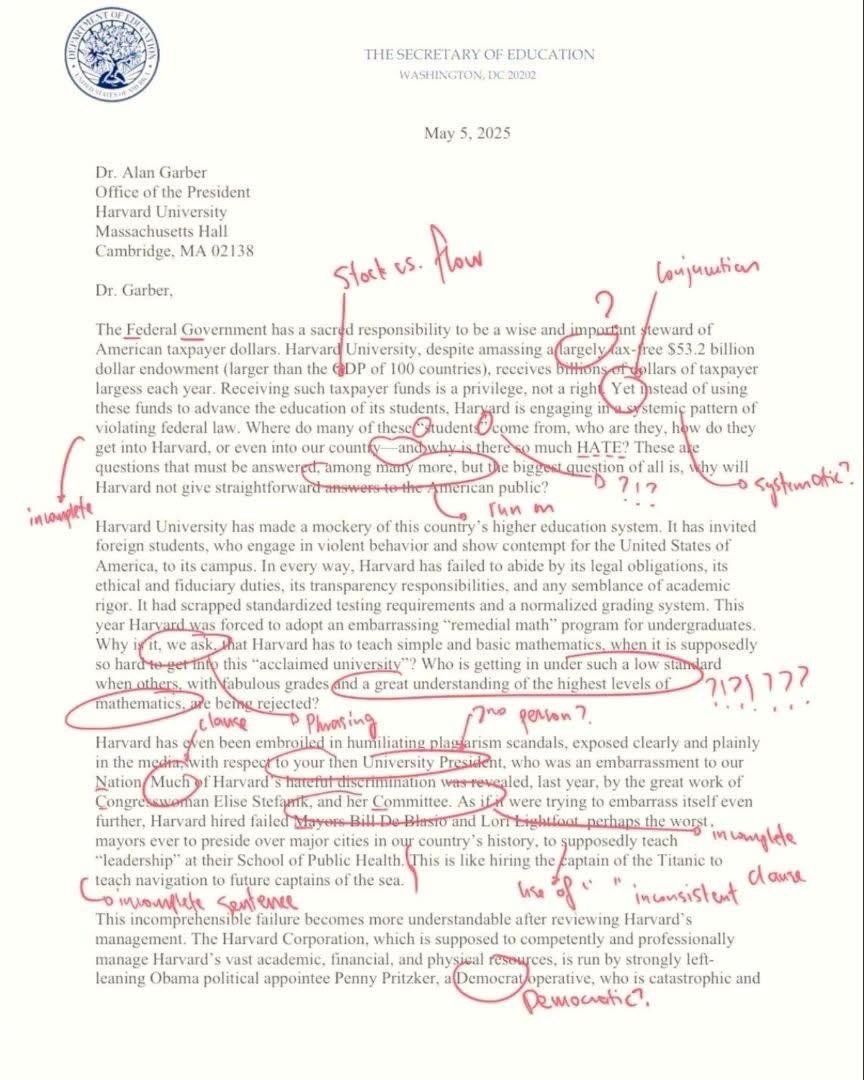 DEPARTMENT OF EDUCATION
UNITED STATES OF AMERICA
THE SECRETARY OF EDUCATION
WASHINGTON, DC 20202
May 5, 2025
Dr. Alan Garber
Office of the President
Harvard University
Massachusetts Hall
Cambridge, MA 02138
Stock vs. flow
Conjunction
Dr. Garber,
?
The Federal Government has a sacred responsibility to be a wise and important steward of
American taxpayer dollars. Harvard University, despite amassing a largely tax-free $53.2 billion
dollar endowment (larger than the GDP of 100 countries), receives billions of dollars of taxpayer
largess each year. Receiving such taxpayer funds is a privilege, not a right. Yet instead of using
these funds to advance the education of its students, Harvard is engaging in a systemic pattern of
violating federal law. Where do many of these “students” come from, who are they, how do they
get into Harvard, or even into our country—and why is there so much HATE? These are
questions that must be answered, among many more, but the biggest question of all is, why will
Harvard not give straightforward answers to the American public?
?!?
systematic?
incomplete
run on
Harvard University has made a mockery of this country’s higher education system. It has invited
foreign students, who engage in violent behavior and show contempt for the United States of
America, to its campus. In every way, Harvard has failed to abide by its legal obligations, its
ethical and fiduciary duties, its transparency responsibilities, and any semblance of academic
rigor. It had scrapped standardized testing requirements and a normalized grading system. This
year Harvard was forced to adopt an embarrassing “remedial math” program for undergraduates.
Why is it, we ask, that Harvard has to teach simple and basic mathematics, when it is supposedly
so hard to get into this “acclaimed university”? Who is getting in under such a low standard
when others, with fabulous grades and a great understanding of the highest levels of
mathematics, are being rejected?
?!?!???
clause
Phrasing
no person?
Harvard has even been embroiled in humiliating plagiarism scandals, exposed clearly and plainly
in the media, with respect to your then University President, who was an embarrassment to our
Nation. Much of Harvard’s hateful discrimination was revealed, last year, by the great work of
Congresswoman Elise Stefanik, and her Committee. As if it were trying to embarrass itself even
further, Harvard hired failed Mayors Bill De Blasio and Lori Lightfoot, perhaps the worst
mayors ever to preside over major cities in our country’s history, to supposedly teach
“leadership” at their School of Public Health. This is like hiring the captain of the Titanic to
teach navigation to future captains of the sea.
incomplete
clause
incomplete sentence
use of “ ” inconsistent
This incomprehensible failure becomes more understandable after reviewing Harvard’s
management. The Harvard Corporation, which is supposed to competently and professionally
manage Harvard’s vast academic, financial, and physical resources, is run by strongly left-
leaning Obama political appointee Penny Pritzker, a Democrat operative, who is catastrophic and
Democratic?